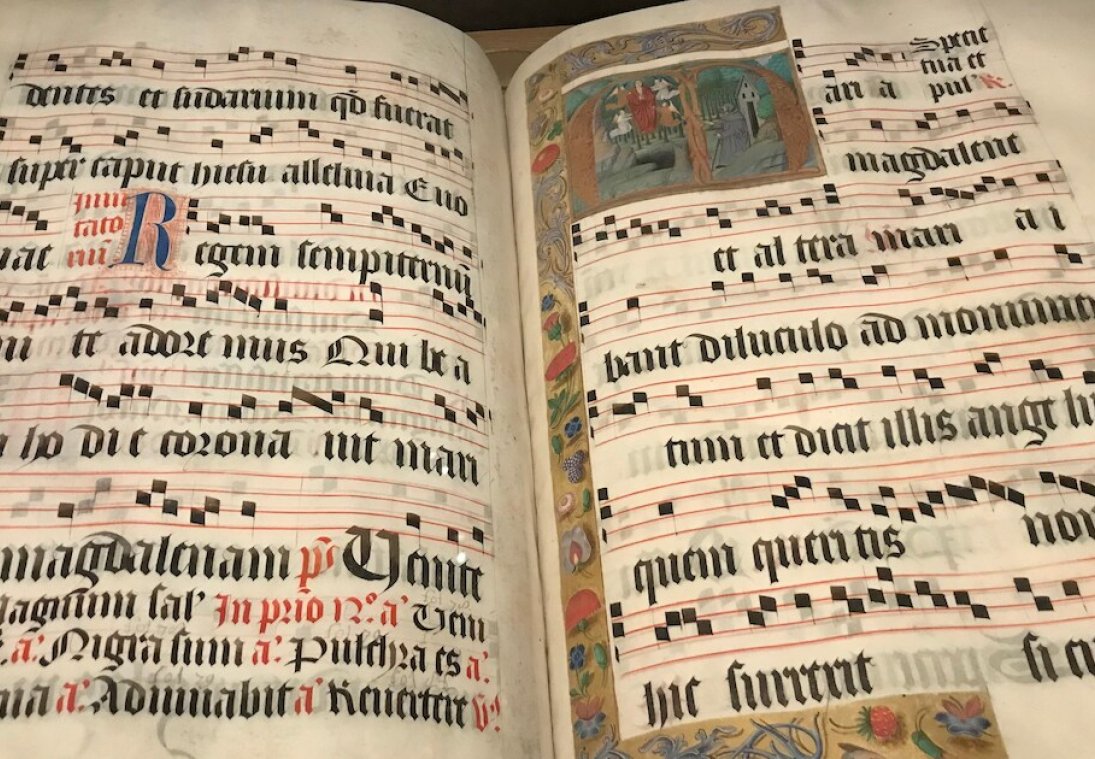 dentes et sudarium qd fuerat
super caput hiesu alleluia Euo
Inui
tato
riū
Regem sempiternū
te adore mus Qui be a
ho di e corona uit mari
magdalenam ps Uenite
sal' In prio n.º a' Ueni
a' Nigra sum a' Pulchra es a'
a' Adiuuabit a' Reuertere v'
Specie
tua et
pul' R.
Mari a
magdalene
et al tera mari a i
bant diluculo ad monumen
tum et dicit illis ange lus
quem queritis non
hic surrexit si cu